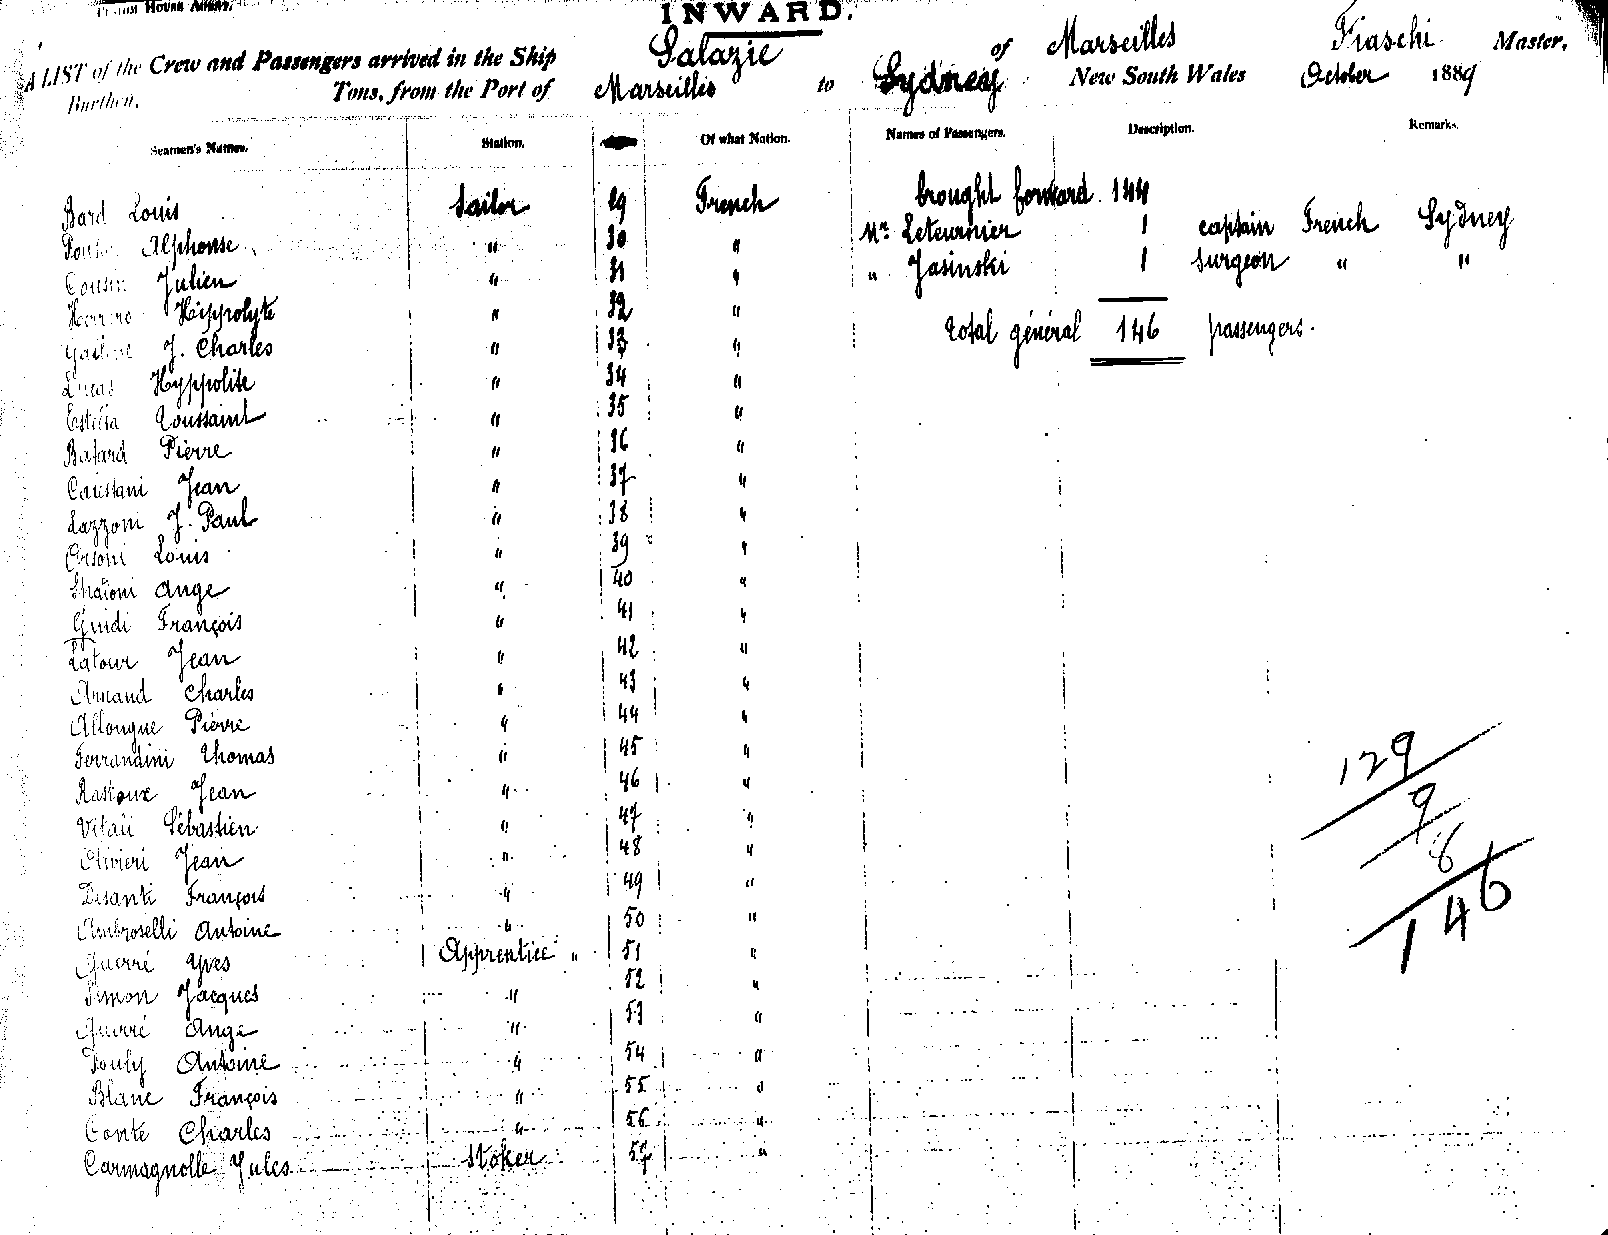 HOUSE
INWARD.
A LIST of the Crew and Passengers arrived in the Ship Salazie of Marseilles Fiaschi Master,
Burthen, Tons, from the Port of Marseilles to Sydney New South Wales October 1889
Seamen's Names. Station. Of what Nation. Names of Passengers. Description. Remarks.
Bard Louis Sailor 29 French brought forward 144
Alphonse " 30 " Mr Letournier 1 captain French Sydney
Cousin Julien " 31 " " Jasinski 1 surgeon " "
Hippolyte " 32 "
J. Charles " 33 " total général 146 passengers.
Lucas Hyppolite " 34 "
Toussaint " 35 "
Batard Pierre " 36 "
Jean " 37 "
Lazzoni J. Paul " 38 "
Orsoni Louis " 39 "
Ange " 40 "
Guidi François " 41 "
Latour Jean " 42 "
Arnaud Charles " 43 "
Allongue Pierre " 44 "
Ferrandini Thomas " 45 "
Jean " 46 "
Vitali Sébastien " 47 "
Olivieri Jean " 48 "
François " 49 "
Ambroselli Antoine " 50 "
Guerré Yves Apprentice " 51 "
Simon Jacques " 52 "
Guerré Ange " 53 "
Pouly Antoine " 54 "
Blanc François " 55 "
Conte Charles " 56 "
Carmagnolle Jules Stoker 57 "
129
9
8
146